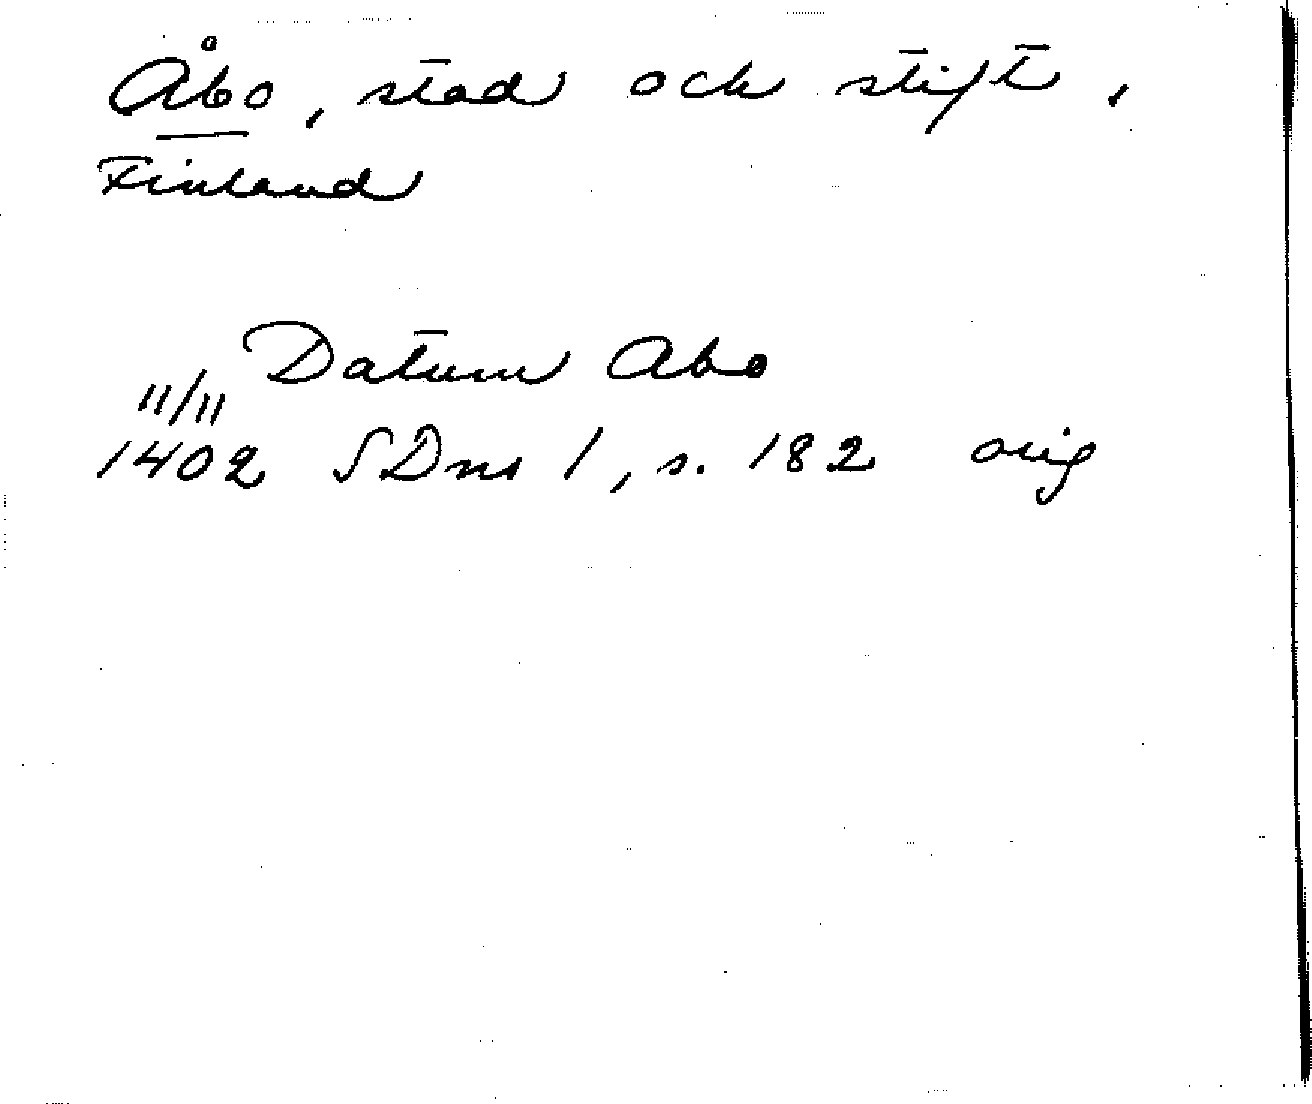 Åbo, stad och stift,
Finland
Datum Abo
11/11
1402 SDns 1, s. 182 orig